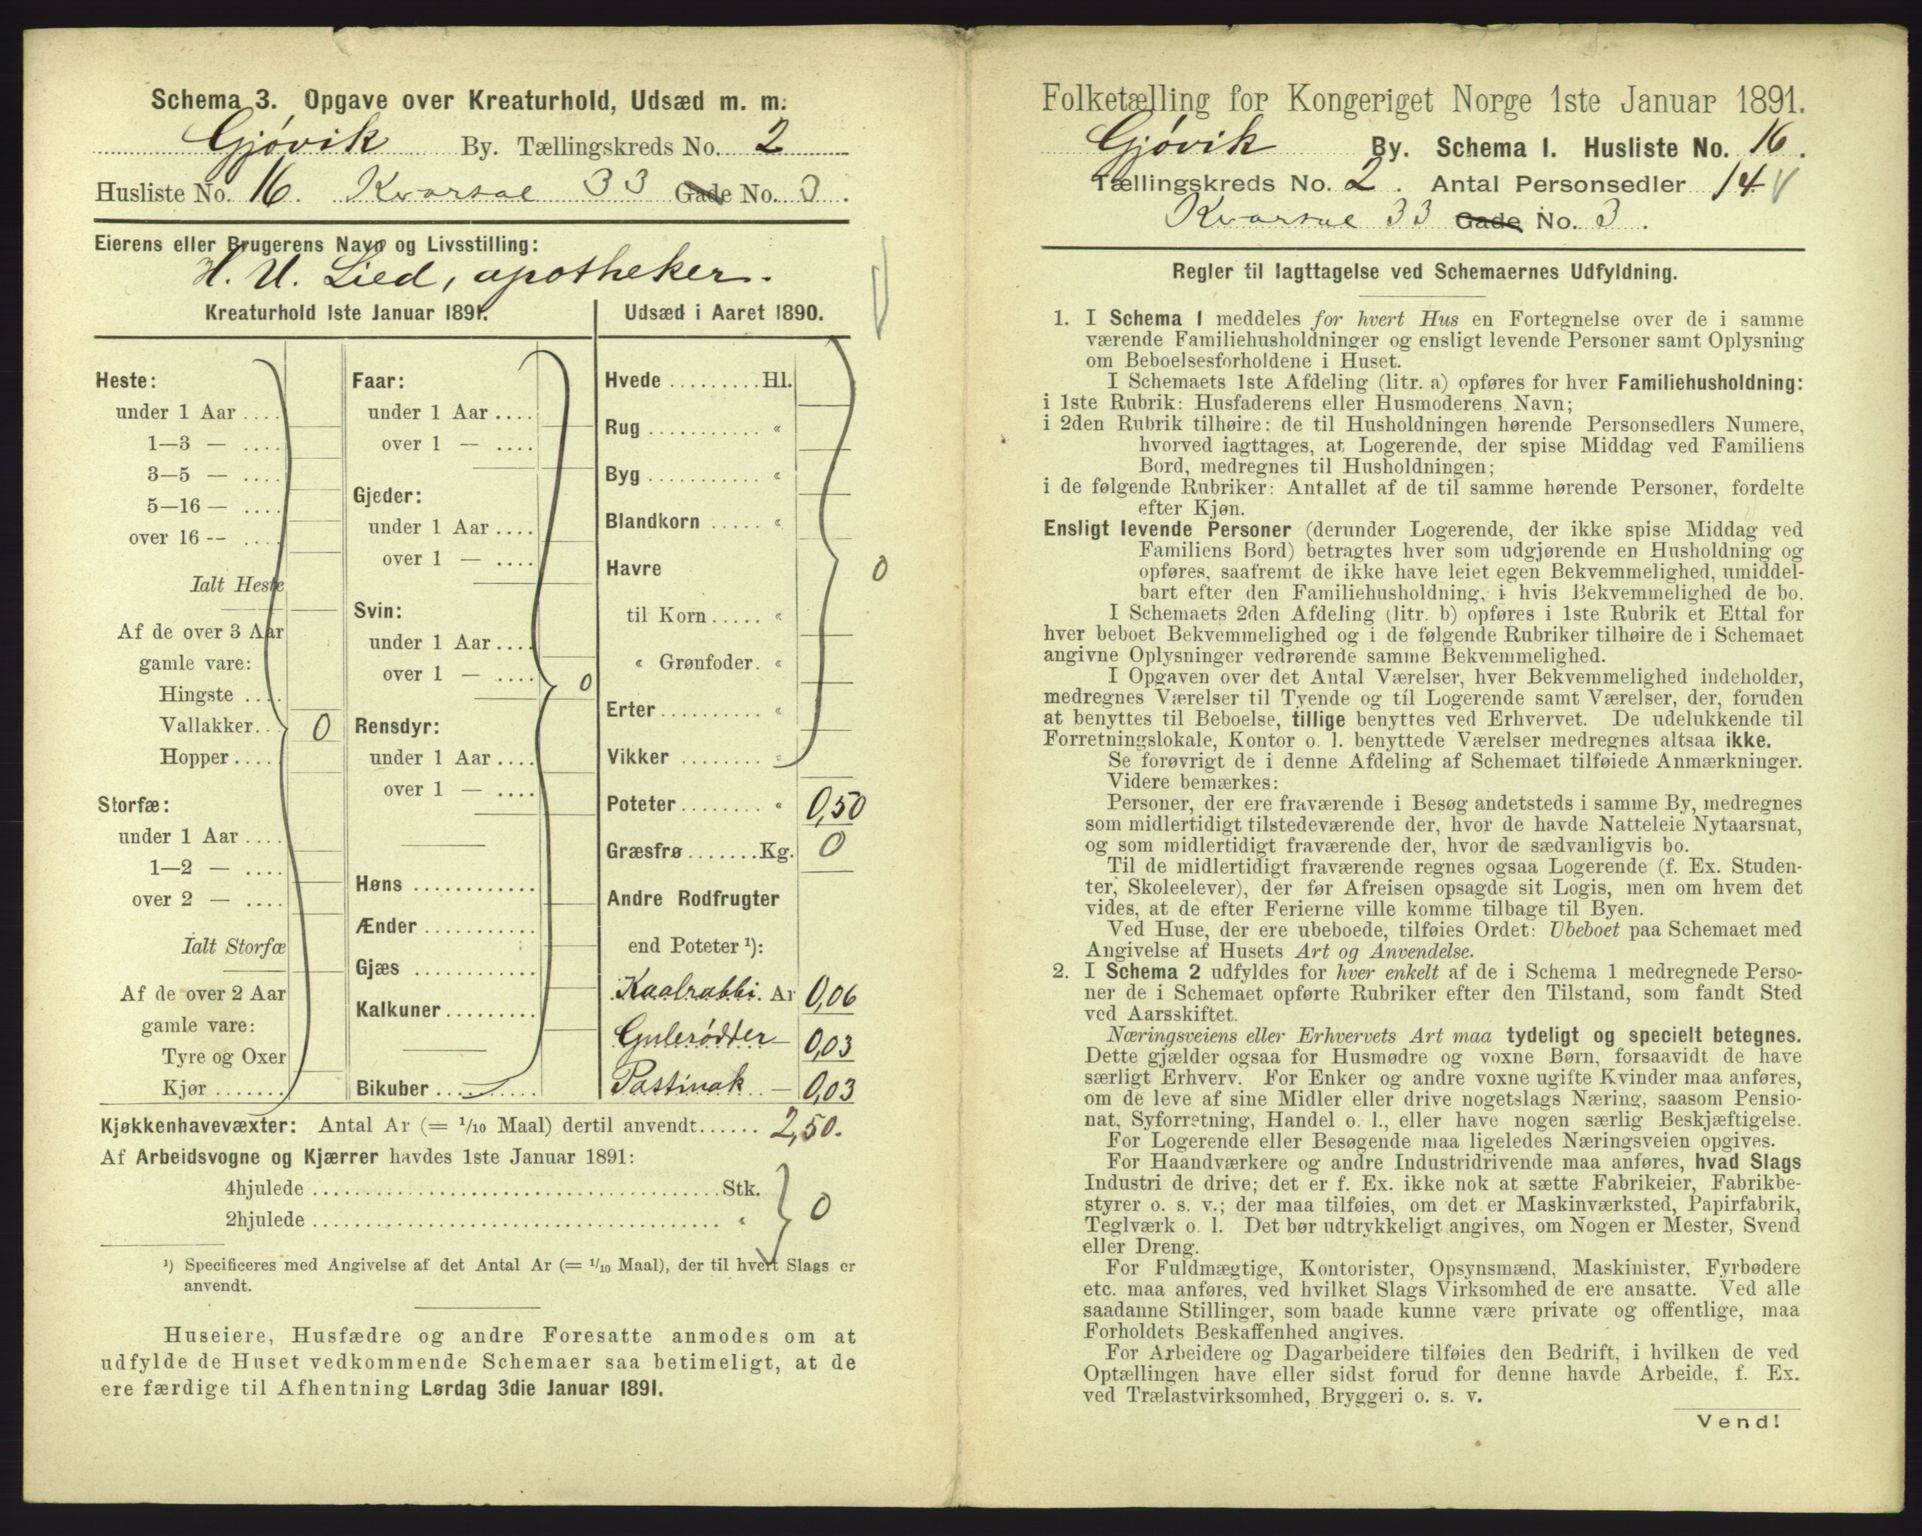 Schema 3. Opgave over Kreaturhold, Udsæd m. m.
Gjøvik By. Tællingskreds No. 2
Husliste No. 16. Kvartal 33 Gade No. 3.
Eierens eller Brugerens Navn og Livsstilling:
H. U. Lied, apotheker.
Kreaturhold 1ste Januar 1891.
Heste:
under 1 Aar ....
1—3 — ....
3—5 — ....
5—16 — ....
over 16 -- ....
Ialt Heste
Af de over 3 Aar
gamle vare:
Hingste ....
Vallakker... 0
Hopper.....
Storfæ:
under 1 Aar ....
1—2 — ....
over 2 — ....
Ialt Storfæ
Af de over 2 Aar
gamle vare:
Tyre og Oxer
Kjør .......
Faar:
under 1 Aar ....
over 1 — ....
Gjeder:
under 1 Aar ....
over 1 — ....
Svin:
under 1 Aar ....
over 1 — ....
0
Rensdyr:
under 1 Aar ....
over 1 — ....
Høns ............
Ænder ...........
Gjæs ............
Kalkuner.........
Bikuber .........
Udsæd i Aaret 1890.
Hvede .........Hl.
Rug ........... «
Byg ........... «
Blandkorn ..... «
Havre
0
til Korn ..... «
« Grønfoder. «
Erter.......... «
Vikker ........ «
Poteter........ « 0,50
Græsfrø.......Kg. 0
Andre Rodfrugter
end Poteter ¹):
Kaalrabbi. Ar 0,06
Gulerødder — 0,03
Pastinak — 0,03
Kjøkkenhavevæxter: Antal Ar (= 1/10 Maal) dertil anvendt...... 2,50.
Af Arbeidsvogne og Kjærrer havdes 1ste Januar 1891:
4hjulede ..........................................Stk.
2hjulede .......................................... « 0
¹) Specificeres med Angivelse af det Antal Ar (= 1/10 Maal), der til hvert Slags er
anvendt.
Huseiere, Husfædre og andre Foresatte anmodes om at
udfylde de Huset vedkommende Schemaer saa betimeligt, at de
ere færdige til Afhentning Lørdag 3die Januar 1891.
Folketælling for Kongeriget Norge 1ste Januar 1891.
Gjøvik By. Schema I. Husliste No. 16.
Tællingskreds No. 2. Antal Personsedler 14
Kvartal 33 Gade No. 3.
Regler til Iagttagelse ved Schemaernes Udfyldning.
1. I Schema I meddeles for hvert Hus en Fortegnelse over de i samme
værende Familiehusholdninger og ensligt levende Personer samt Oplysning
om Beboelsesforholdene i Huset.
I Schemaets 1ste Afdeling (litr. a) opføres for hver Familiehusholdning:
i 1ste Rubrik: Husfaderens eller Husmoderens Navn;
i 2den Rubrik tilhøire: de til Husholdningen hørende Personsedlers Numere,
hvorved iagttages, at Logerende, der spise Middag ved Familiens
Bord, medregnes til Husholdningen;
i de følgende Rubriker: Antallet af de til samme hørende Personer, fordelte
efter Kjøn.
Ensligt levende Personer (derunder Logerende, der ikke spise Middag ved
Familiens Bord) betragtes hver som udgjørende en Husholdning og
opføres, saafremt de ikke have leiet egen Bekvemmelighed, umiddel-
bart efter den Familiehusholdning, i hvis Bekvemmelighed de bo.
I Schemaets 2den Afdeling (litr. b) opføres i 1ste Rubrik et Ettal for
hver beboet Bekvemmelighed og i de følgende Rubriker tilhøire de i Schemaet
angivne Oplysninger vedrørende samme Bekvemmelighed.
I Opgaven over det Antal Værelser, hver Bekvemmelighed indeholder,
medregnes Værelser til Tyende og til Logerende samt Værelser, der, foruden
at benyttes til Beboelse, tillige benyttes ved Erhvervet. De udelukkende til
Forretningslokale, Kontor o. l. benyttede Værelser medregnes altsaa ikke.
Se forøvrigt de i denne Afdeling af Schemaet tilføiede Anmærkninger.
Videre bemærkes:
Personer, der ere fraværende i Besøg andetsteds i samme By, medregnes
som midlertidigt tilstedeværende der, hvor de havde Natteleie Nytaarsnat,
og som midlertidigt fraværende der, hvor de sædvanligvis bo.
Til de midlertidigt fraværende regnes ogsaa Logerende (f. Ex. Studen-
ter, Skoleelever), der før Afreisen opsagde sit Logis, men om hvem det
vides, at de efter Ferierne ville komme tilbage til Byen.
Ved Huse, der ere ubeboede, tilføies Ordet: Ubeboet paa Schemaet med
Angivelse af Husets Art og Anvendelse.
2. I Schema 2 udfyldes for hver enkelt af de i Schema 1 medregnede Perso-
ner de i Schemaet opførte Rubriker efter den Tilstand, som fandt Sted
ved Aarsskiftet.
Næringsveiens eller Erhvervets Art maa tydeligt og specielt betegnes.
Dette gjælder ogsaa for Husmødre og voxne Børn, forsaavidt de have
særligt Erhverv. For Enker og andre voxne ugifte Kvinder maa anføres,
om de leve af sine Midler eller drive nogetslags Næring, saasom Pensio-
nat, Syforretning, Handel o. l., eller have nogen særlig Beskjæftigelse.
For Logerende eller Besøgende maa ligeledes Næringsveien opgives.
For Haandværkere og andre Industridrivende maa anføres, hvad Slags
Industri de drive; det er f. Ex. ikke nok at sætte Fabrikeier, Fabrikbe-
styrer o. s. v.; der maa tilføies, om det er Maskinværksted, Papirfabrik,
Teglværk o. l. Det bør udtrykkeligt angives, om Nogen er Mester, Svend
eller Dreng.
For Fuldmægtige, Kontorister, Opsynsmænd, Maskinister, Fyrbødere
etc. maa anføres, ved hvilket Slags Virksomhed de ere ansatte. Ved alle
saadanne Stillinger, som baade kunne være private og offentlige, maa
Forholdets Beskaffenhed angives.
For Arbeidere og Dagarbeidere tilføies den Bedrift, i hvilken de ved
Optællingen have eller sidst forud for denne havde Arbeide, f. Ex.
ved Trælastvirksomhed, Bryggeri o. s. v.
Vend!